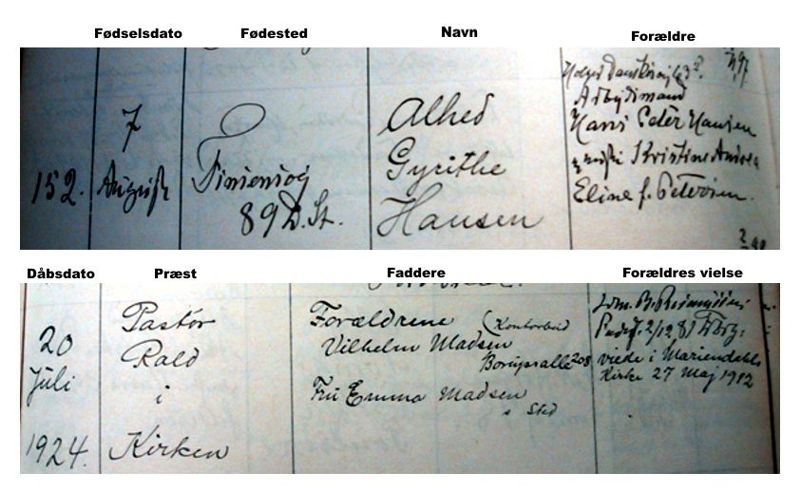 Fødselsdato Fødested Navn Forældre
7
152. August
89 D. St.
Alhed
Gyrithe
Hansen
Arbejdsmand
Hans Peter Hansen
Kristine Andrea
Eline f. Petersen.
Dåbsdato Præst Faddere Forældres vielse
20
Juli
1924.
Pastor
Rald
i
Kirken
Forældrene
Vilhelm Madsen
Borups alle 208
Fru Emma Madsen
s Sted
viede i Mariendahls
Kirke 27 Maj 1912